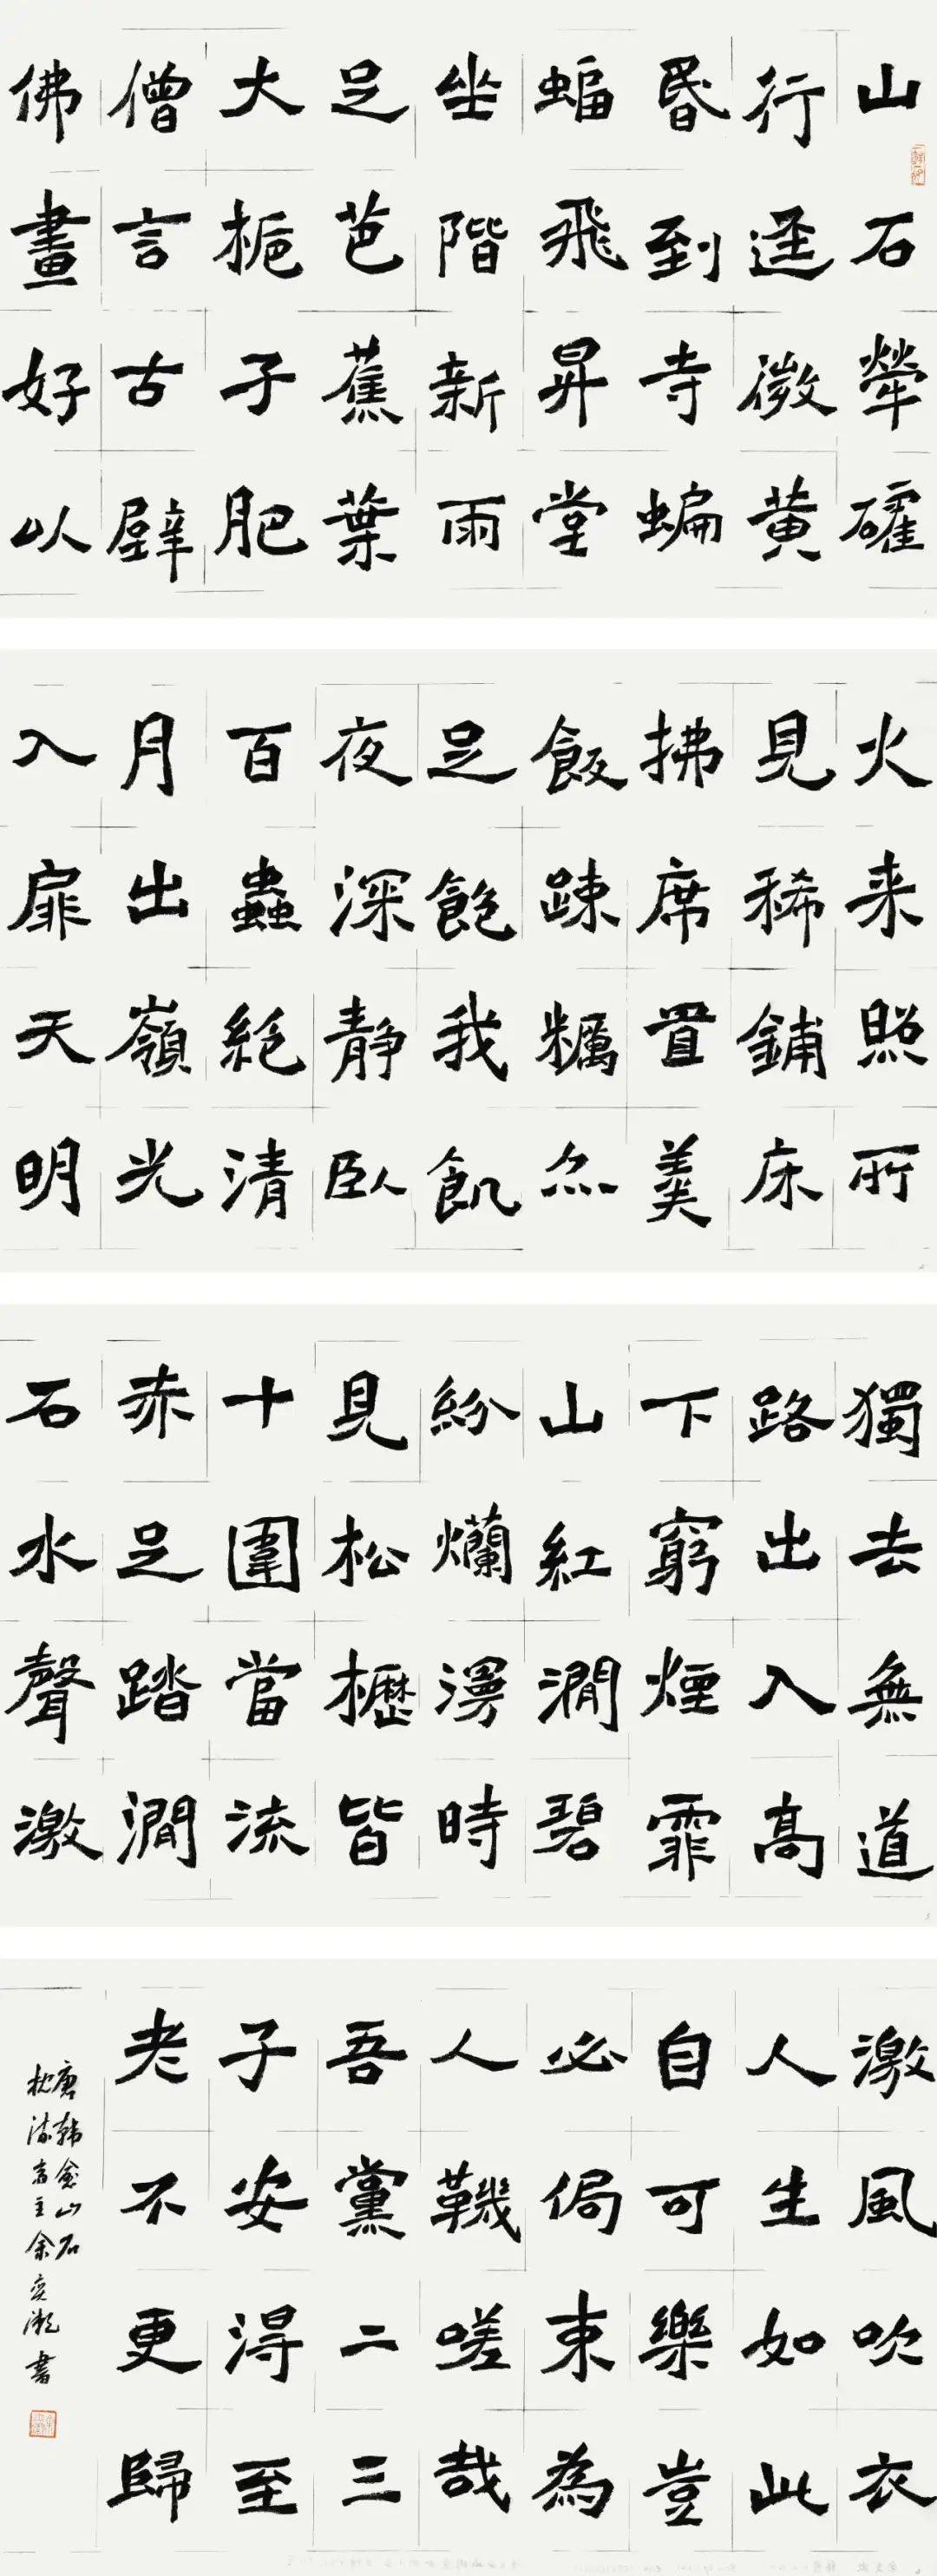 山石犖礭
行逕微黃
昬到寺蝙
蝠飛昇堂
坐階新雨
足芭蕉葉
大梔子肥
僧言古壁
佛畫好以
火来照所
見稀鋪床
拂席置羹
飯疎糲亦
足飽我飢
夜深静臥
百蟲絶清
月出嶺光
入扉天明
獨去無道
路出入高
下窮煙霏
山紅澗碧
紛爛漫時
見松櫪皆
十圍當流
赤足踏澗
石水聲激
激風吹衣
人生如此
自可樂豈
必侷束為
人鞿嗟哉
吾黨二三
子安得至
老不更歸
唐韩愈山石
枕流斋主余奕書